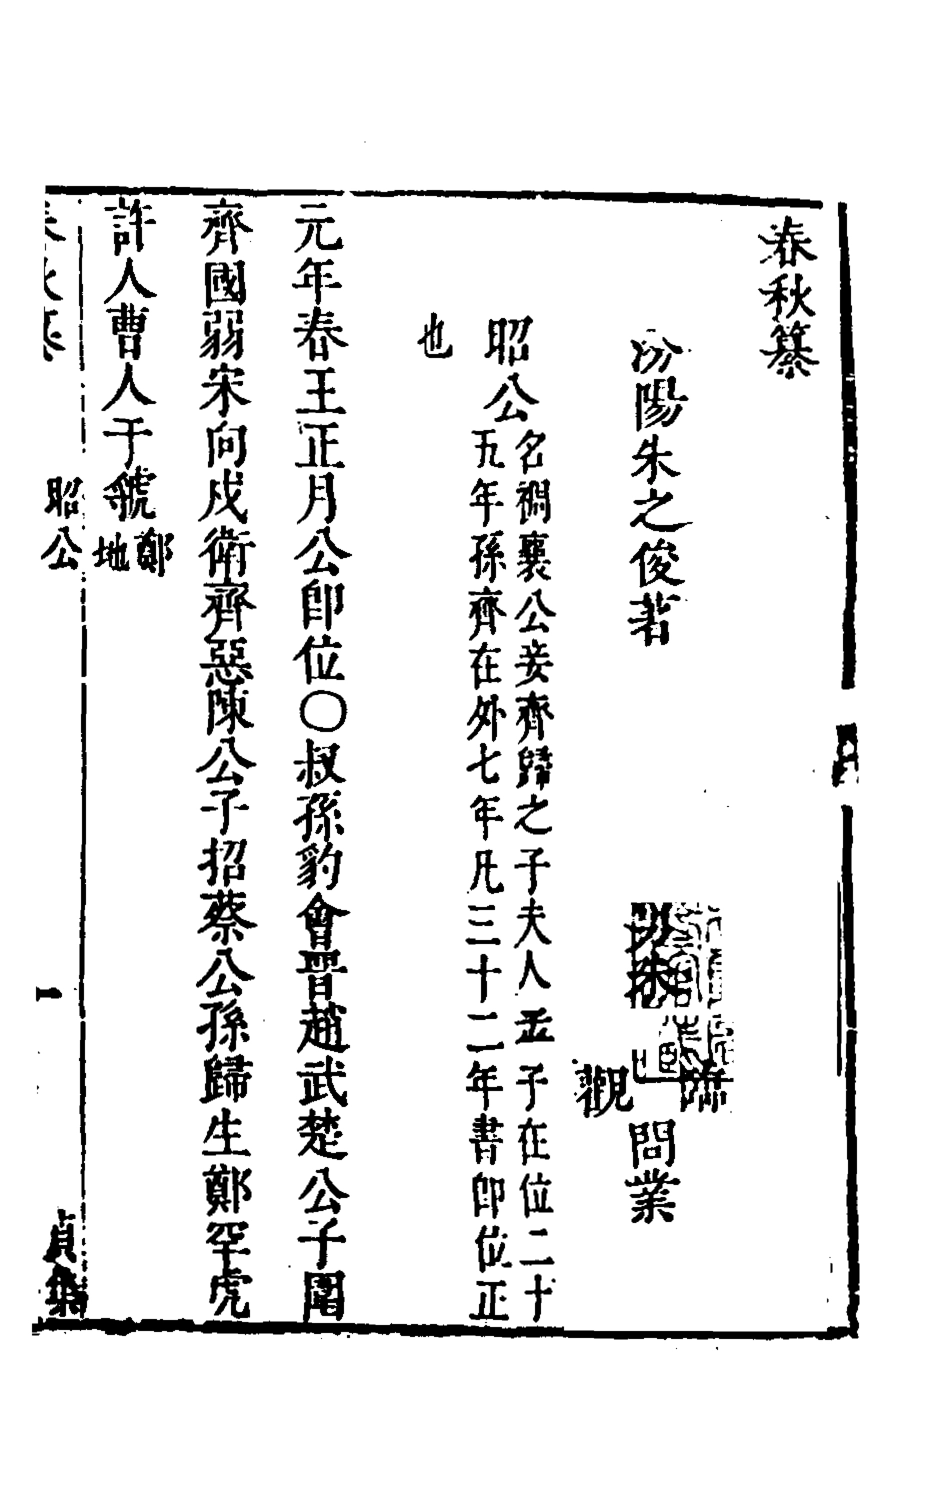 春秋纂
汾陽朱之俊著
臨
問業
觀
昭公
名裯襄公妾齊歸之子夫人孟子在位二十
五年孫齊在外七年凡三十二年書卽位正
也
元年春王正月公卽位〇叔孫豹會晉趙武楚公子圍
齊國弱宋向戌衛齊惡陳公子招蔡公孫歸生鄭罕虎
許人曹人于虢
鄭
地
春秋纂
昭公
一
貞集